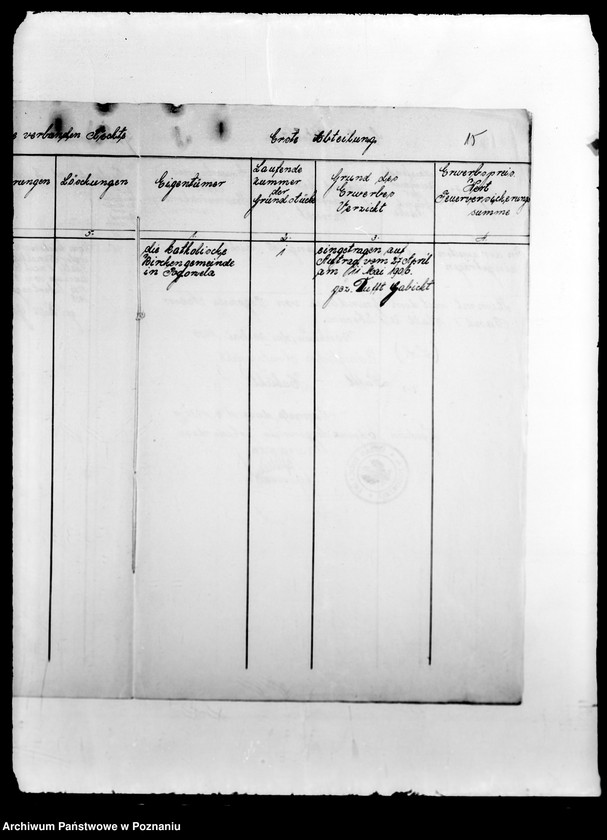 verbunden Rechte
Erste Abteilung.
15
rungen
Löschungen
Eigentümer
Laufende
nummer
der
Grundstücke
Grund des
Erwerbes
Verzicht
Erwerbspreis
Wert
Feuerversicherungs
summe
5.
1.
2.
3.
4.
die katholische
Kirchengemeinde
in Pogonela
1
eingetragen auf
Antrag vom 27 April
am 11. Mai 1906.
gez.
Gabickt
Archiwum Państwowe w Poznaniu